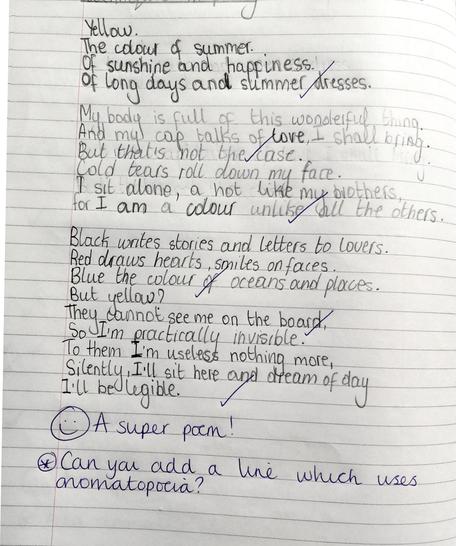 Yellow.
The colour of summer.
Of sunshine and happiness.
Of long days and summer dresses.
My body is full of this wonderful thing.
And my cap talks of love, I shall bring.
But that's not the case.
Cold tears roll down my face.
I sit alone, a not like my brothers,
for I am a colour unlike all the others.
Black writes stories and letters to lovers.
Red draws hearts, smiles on faces.
Blue the colour of oceans and places.
But yellow?
They cannot see me on the board,
So I'm practically invisible.
To them I'm useless nothing more,
Silently, I'll sit here and dream of day
I'll be legible.
A super poem!
Can you add a line which uses
onomatopoeia?